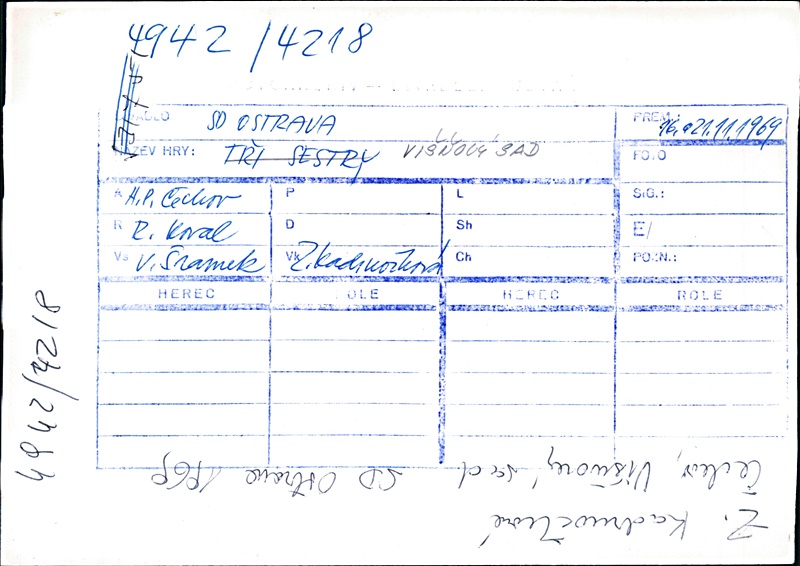 4942/4218
DIVADLO SD OSTRAVA
PREM.: 16. a 21.11.1969
NÁZEV HRY: TŘI SESTRY VIŠŇOVÝ SAD
FOTO
A A.P. Čechov P L SIG.:
R R. Koval D Sh E/
Vs V. Šramek Vk Z. Kadrnožková Ch POZN.:
HEREC ROLE HEREC ROLE
4942/4218
Čechov, Višňový sad SD Ostrava 1969
Z. Kadrnožková